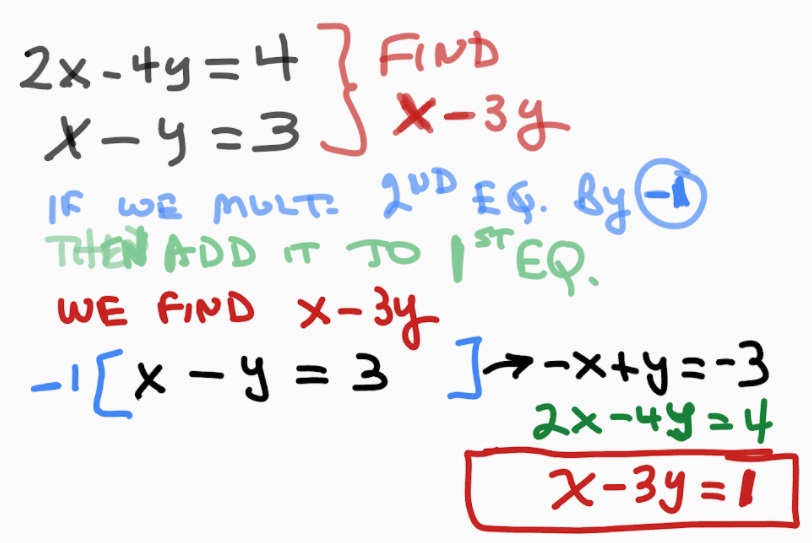 2x-4y=4
x-y=3
FIND
x-3y
IF WE MULT. 2ND EQ. By -1
THEN ADD IT TO 1ST EQ.
WE FIND x-3y
-1[x-y=3]→-x+y=-3
2x-4y=4
x-3y=1